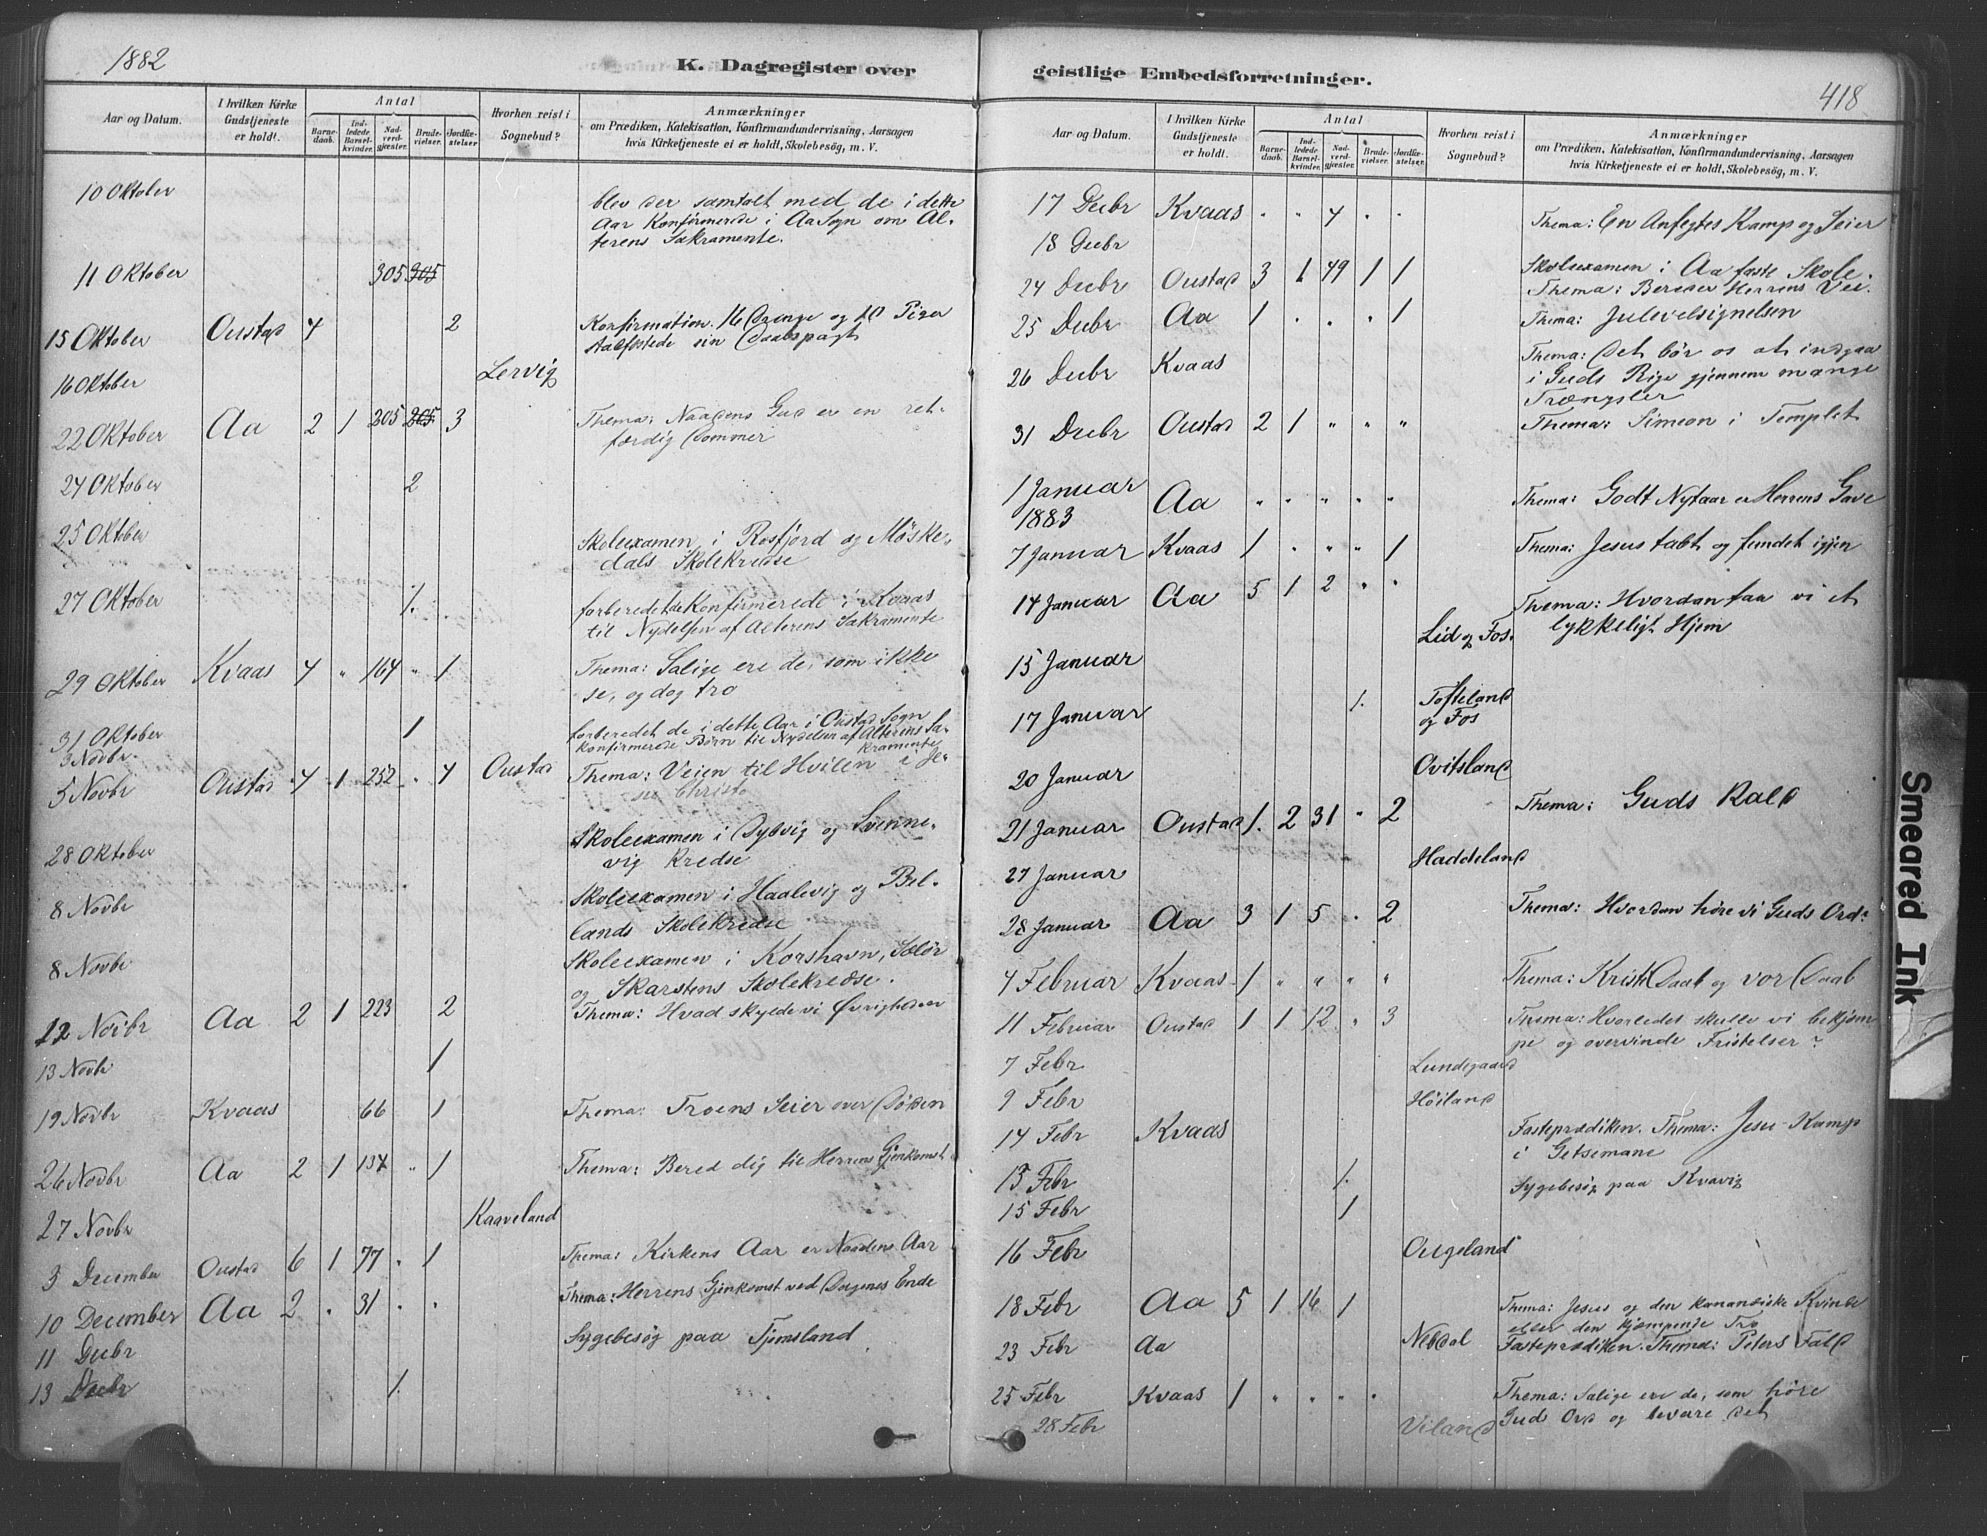 1882
K. Dagregister over
Aar og Datum.
I hvilken Kirke Gudstjeneste er holdt.
Antal
Barnedaab.
Indledede Barselkvinder.
Nadverdgjæster.
Brudevielser.
Jordfæstelser
Hvorhen reist i Sognebud?
Anmærkninger
om Prædiken, Katekisation, Konfirmandundervisning, Aarsagen
hvis Kirketjeneste ei er holdt, Skolebesøg, m. V.
10 Oktober blev der samtalt med de i dette
Aar Konfirmerede i Aa Sogn om Al-
terens Sakramente.
11 Oktober 305 305
15 Oktober Oustad 4 2 Konfirmation. 16 Drenge og 10 Piger
stadfæstede sin Daabspagt
16 Oktober Lervig
22 Oktober Aa 2 1 205 205 3 Thema: Naadens Gud er en ret-
færdig Dommer
24 Oktober 2
25 Oktober Skoleexamen i Rosfjord og Møske-
dals Skolekredse
27 Oktober 1. forberedet de Konfirmerede i Kvaas
til Nydelsen af Alterens Sakramente
29 Oktober Kvaas 4 " 164 " 1 Thema: Salige ere de, som ikke
se, og dog tro
31 Oktober 1 forberedet de i dette Aar i Oustad Sogn
3 Novbr. konfirmerede Børn til Nydelsen af Alterens Sa-
kramente
5 Novbr Oustad 4 1 252 " 4 Oustad Thema: Veien til Hvilen i Je-
su Christo
28 Oktober Skoleexamen i Dybvig og Svenne-
vig Kredse
8 Novbr Skoleexamen i Haalevig og Bel-
lands Skolekredse
8 Novbr Skoleexamen i Korshavn, Sælør
og Skarstens Skolekredse.
12 Novbr Aa 2 1 223 2 Thema: Hvad skylde vi Øvrigheden
13 Novbr 1
19 Novbr Kvaas 66 1 Thema: Troens Seier over Døden
26 Novbr Aa 2 1 134 " 1 Thema: Bered dig til Herrens Gjenkomst
27 Novbr Kaaveland
3 December Oustad 6 1 77 " 1 Thema: Kirkens Aar er Naadens Aar
10 December Aa 2 " 31 " " Thema: Herrens Gjenkomst ved Dagenes Ende
11 Decbr Sygebesøg paa Tjomsland
13 Decbr 1.
geistlige Embedsforretninger.
418
Aar og Datum.
I hvilken Kirke Gudstjeneste er holdt.
Antal
Barnedaab.
Indledede Barselkvinder.
Nadverdgjæster.
Brudevielser.
Jordfæstelser.
Hvorhen reist i Sognebud?
Anmærkninger
om Prædiken, Katekisation, Konfirmandundervisning, Aarsagen
hvis Kirketjeneste ei er holdt, Skolebesøg, m. V.
17 Decbr Kvaas " " 4 " " Thema: En Anfegtes Kamp og Seier
18 Decbr Skoleexamen i Aa faste Skole.
24 Decbr Oustad 3 1 49 1 1 Thema: Bereder Herrens Vei.
25 Decbr Aa 1 " " " 1 Thema: Julevelsignelsen
26 Decbr Kvaas Thema: Det bør os at indgaa
i Guds Rige gjennem mange
Trængsler
31 Decbr Oustad 2 1 " " " Thema: Simeon i Templet
1 Januar
1883 Aa " " " " " Thema: Godt Nytaar er Herrens Gave
7 Januar Kvaas 1 " " " 1 Thema: Jesus tabt og fundet igjen
14 Januar Aa 5 1 2 " " Thema: Hvordan faa vi et
lykkeligt Hjem
15 Januar Lid og Fos.
17 Januar 1. Tofteland
og Fos
20 Januar Ovitsland
21 Januar Oustad 1. 2 31 " 2 Thema: Guds Kald
27 Januar Haddeland
28 Januar Aa 3 1 5 " 2 Thema: Hvordan høre vi Guds Ord?
4 Februar Kvaas 1 " " " " Thema: Kristi Daab og vor Daab
11 Februar Oustad 1 1 12 " 3 Thema: Hvorledes skulle vi bekjæm-
pe og overvinde Fristelser?
7 Febr Lundegaard
9 Febr Høiland
14 Febr Kvaas Fasteprædiken. Thema: Jesu Kamp
i Getsemane
13 Febr 1. Sygebesøg paa Kvavig
15 Febr 1
16 Febr Ougeland
18 Febr Aa 5 1 16 1 Thema: Jesus og den kananæiske Kvinde
eller den kjæmpende Tro
23 Febr Aa Neddal Fasteprædiken. Thema: Peters Fald
25 Febr Kvaas 1 " " " " Thema: Salige ere de, som høre
Gud Ord og bevare det
28 Febr Viland
Smeared Ink